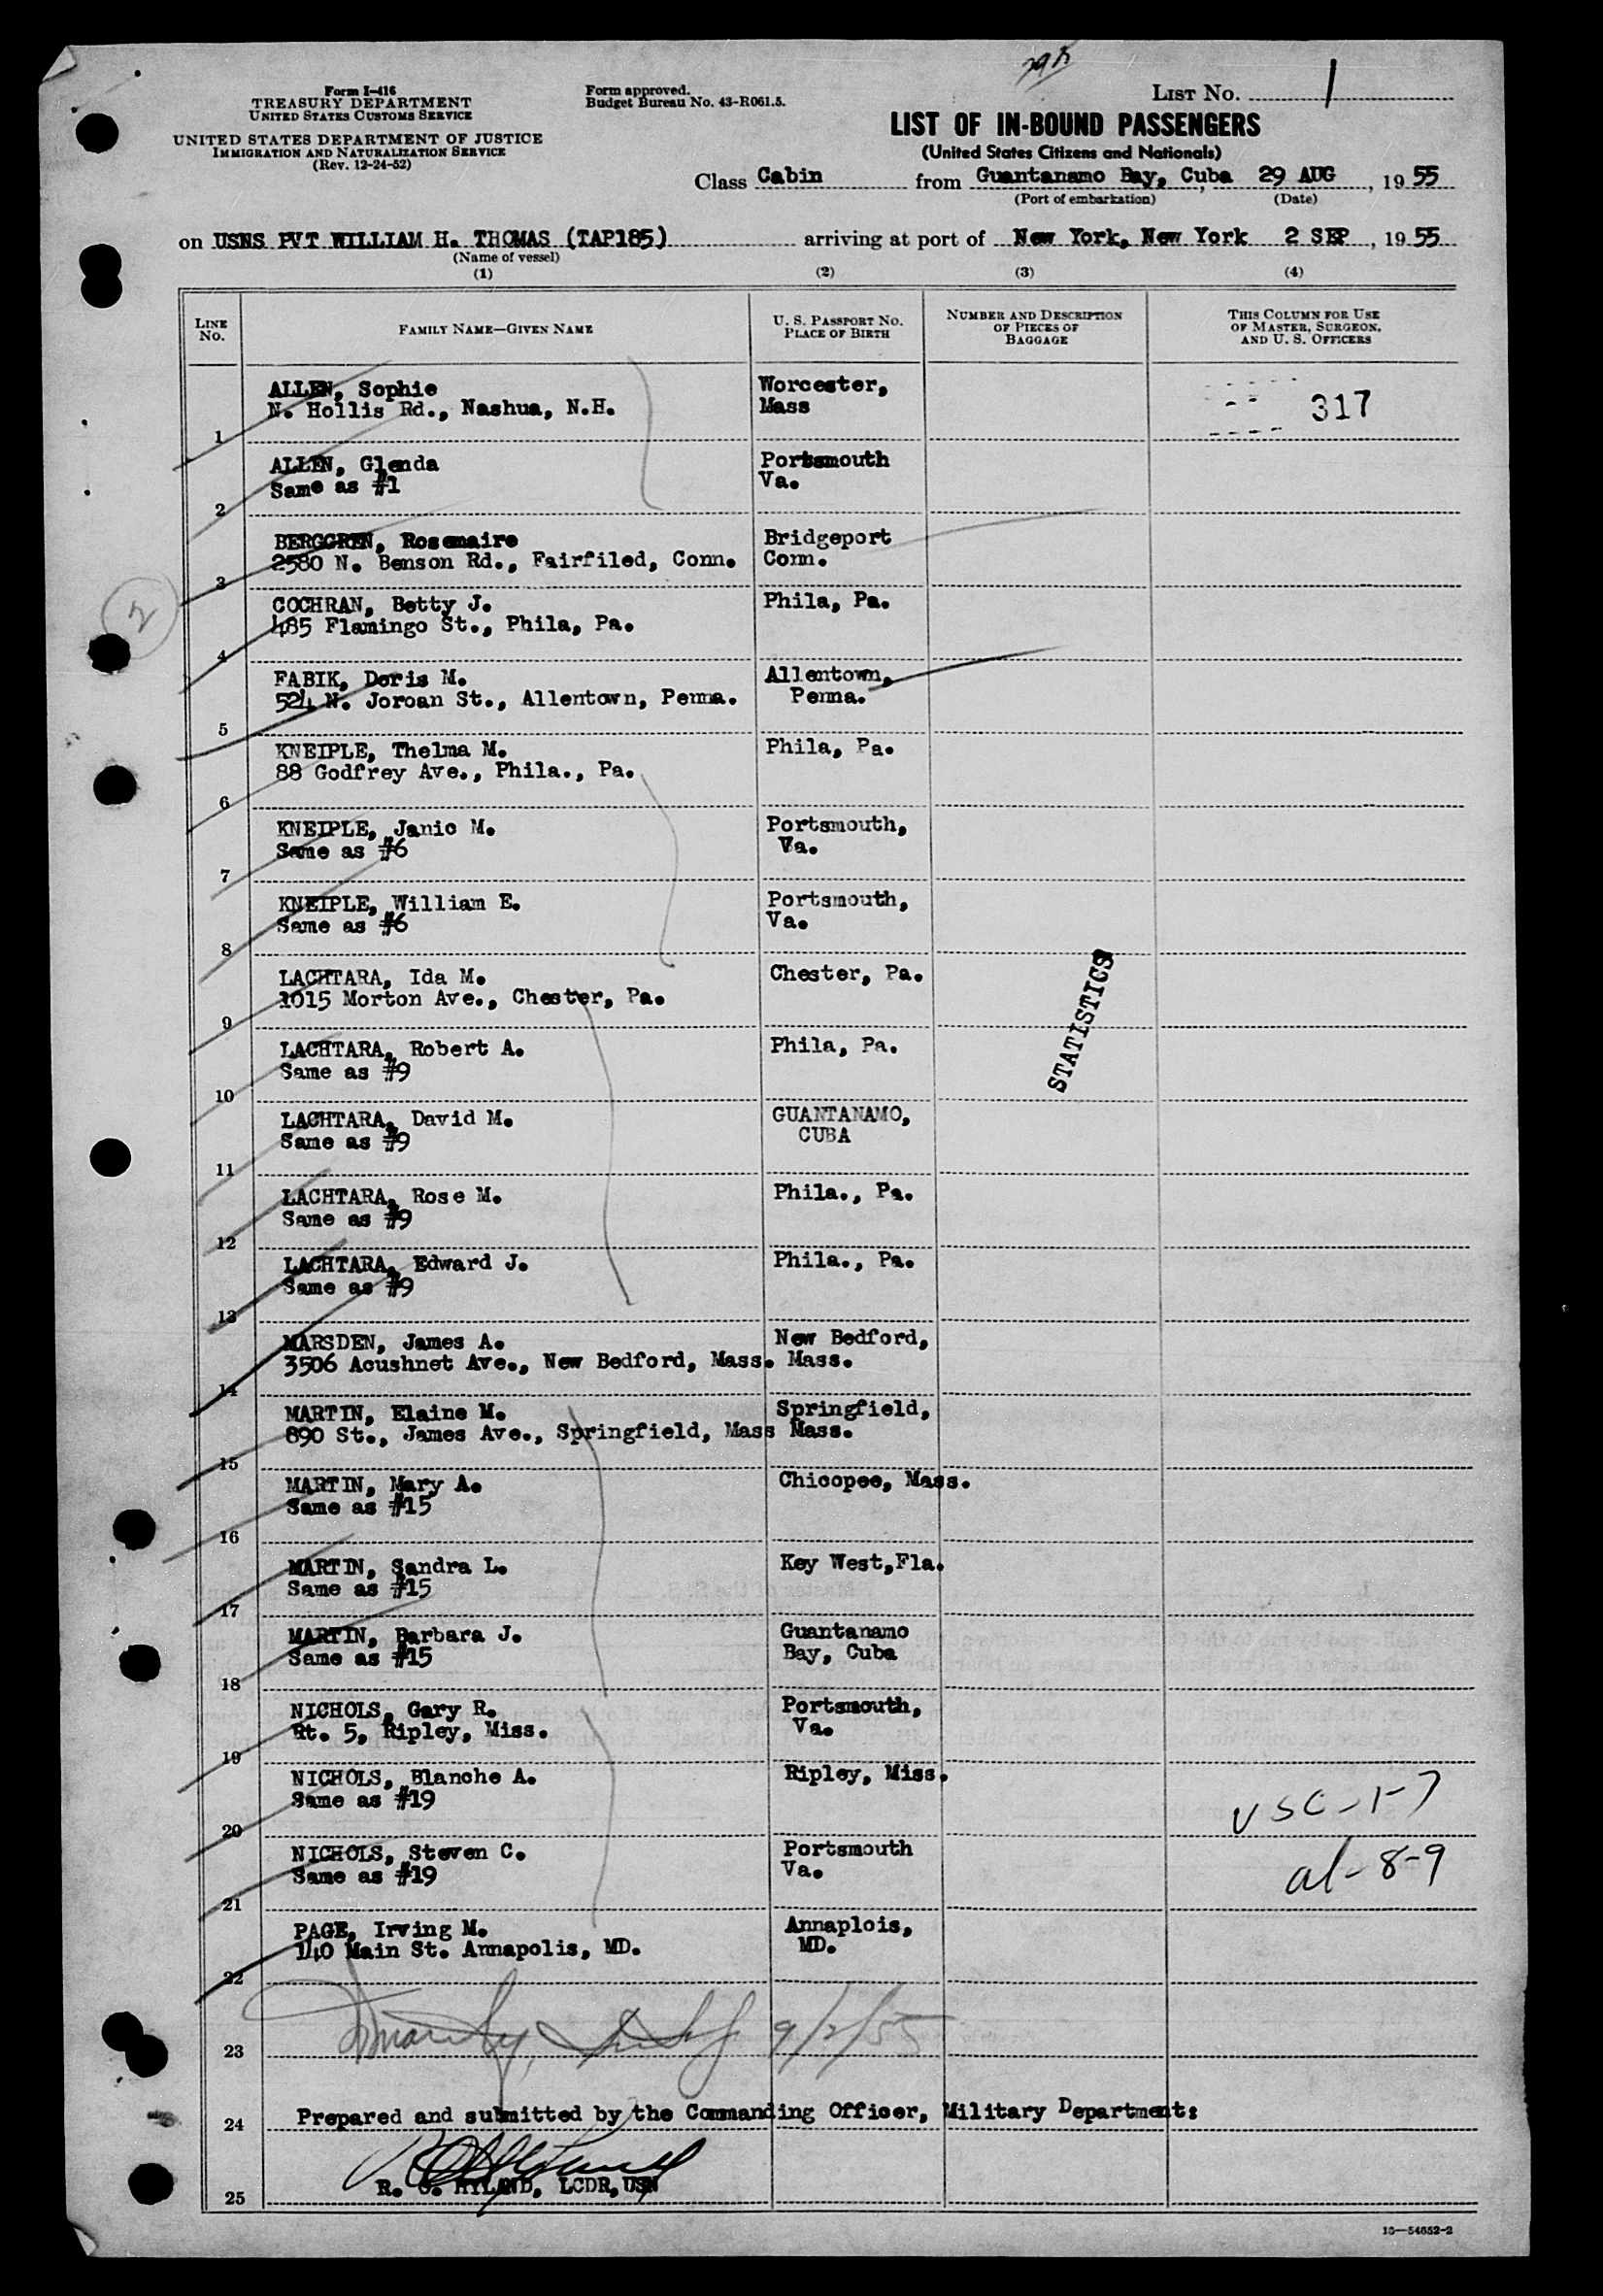 29 A
Form I-416
TREASURY DEPARTMENT
UNITED STATES CUSTOMS SERVICE
UNITED STATES DEPARTMENT OF JUSTICE
IMMIGRATION AND NATURALIZATION SERVICE
(Rev. 12-24-52)
Form approved.
Budget Bureau No. 43-R061.5.
LIST NO. 1
LIST OF IN-BOUND PASSENGERS
(United States Citizens and Nationals)
Class Cabin from Guantanamo Bay, Cuba, 29 AUG, 1955
(Port of embarkation) (Date)
on USNS PVT WILLIAM H. THOMAS (TAP185) arriving at port of New York, New York 2 SEP, 1955
(Name of vessel)
(1) (2) (3) (4)
LINE NO. FAMILY NAME—GIVEN NAME U. S. PASSPORT NO. PLACE OF BIRTH NUMBER AND DESCRIPTION OF PIECES OF BAGGAGE THIS COLUMN FOR USE OF MASTER, SURGEON, AND U. S. OFFICERS
ALLEN, Sophie Worcester,
N. Hollis Rd., Nashua, N.H. Mass 317
1
ALLEN, Glenda Portsmouth
Same as #1 Va.
2
BERGGREN, Rosemaire Bridgeport
2580 N. Benson Rd., Fairfiled, Conn. Conn.
3
2
COCHRAN, Betty J. Phila, Pa.
485 Flamingo St., Phila, Pa.
4
FABIK, Doris M. Allentown,
524 N. Joroan St., Allentown, Penna. Penna.
5
KNEIPLE, Thelma M. Phila, Pa.
88 Godfrey Ave., Phila., Pa.
6
KNEIPLE, Janic M. Portsmouth,
Same as #6 Va.
7
KNEIPLE, William E. Portsmouth,
Same as #6 Va.
8
LACHTARA, Ida M. Chester, Pa.
1015 Morton Ave., Chester, Pa.
9
STATISTICS
LACHTARA, Robert A. Phila, Pa.
Same as #9
10
LACHTARA, David M. GUANTANAMO,
Same as #9 CUBA
11
LACHTARA, Rose M. Phila., Pa.
Same as #9
12
LACHTARA, Edward J. Phila., Pa.
Same as #9
13
MARSDEN, James A. New Bedford,
3506 Acushnet Ave., New Bedford, Mass. Mass.
14
MARTIN, Elaine M. Springfield,
890 St., James Ave., Springfield, Mass Mass.
15
MARTIN, Mary A. Chicopee, Mass.
Same as #15
16
MARTIN, Sandra L. Key West,Fla.
Same as #15
17
MARTIN, Barbara J. Guantanamo
Same as #15 Bay, Cuba
18
NICHOLS, Gary R. Portsmouth,
Rt. 5, Ripley, Miss. Va.
19
NICHOLS, Blanche A. Ripley, Miss.
Same as #19
20 USC-1-7
NICHOLS, Steven C. Portsmouth
Same as #19 Va. al-8-9
21
PAGE, Irving M. Annaplois,
140 Main St. Annapolis, MD. MD.
22
9/2/55
23
Prepared and submitted by the Commanding Officer, Military Department:
24
R. C. HYLAND, LCDR, USN
25
16—54652-2